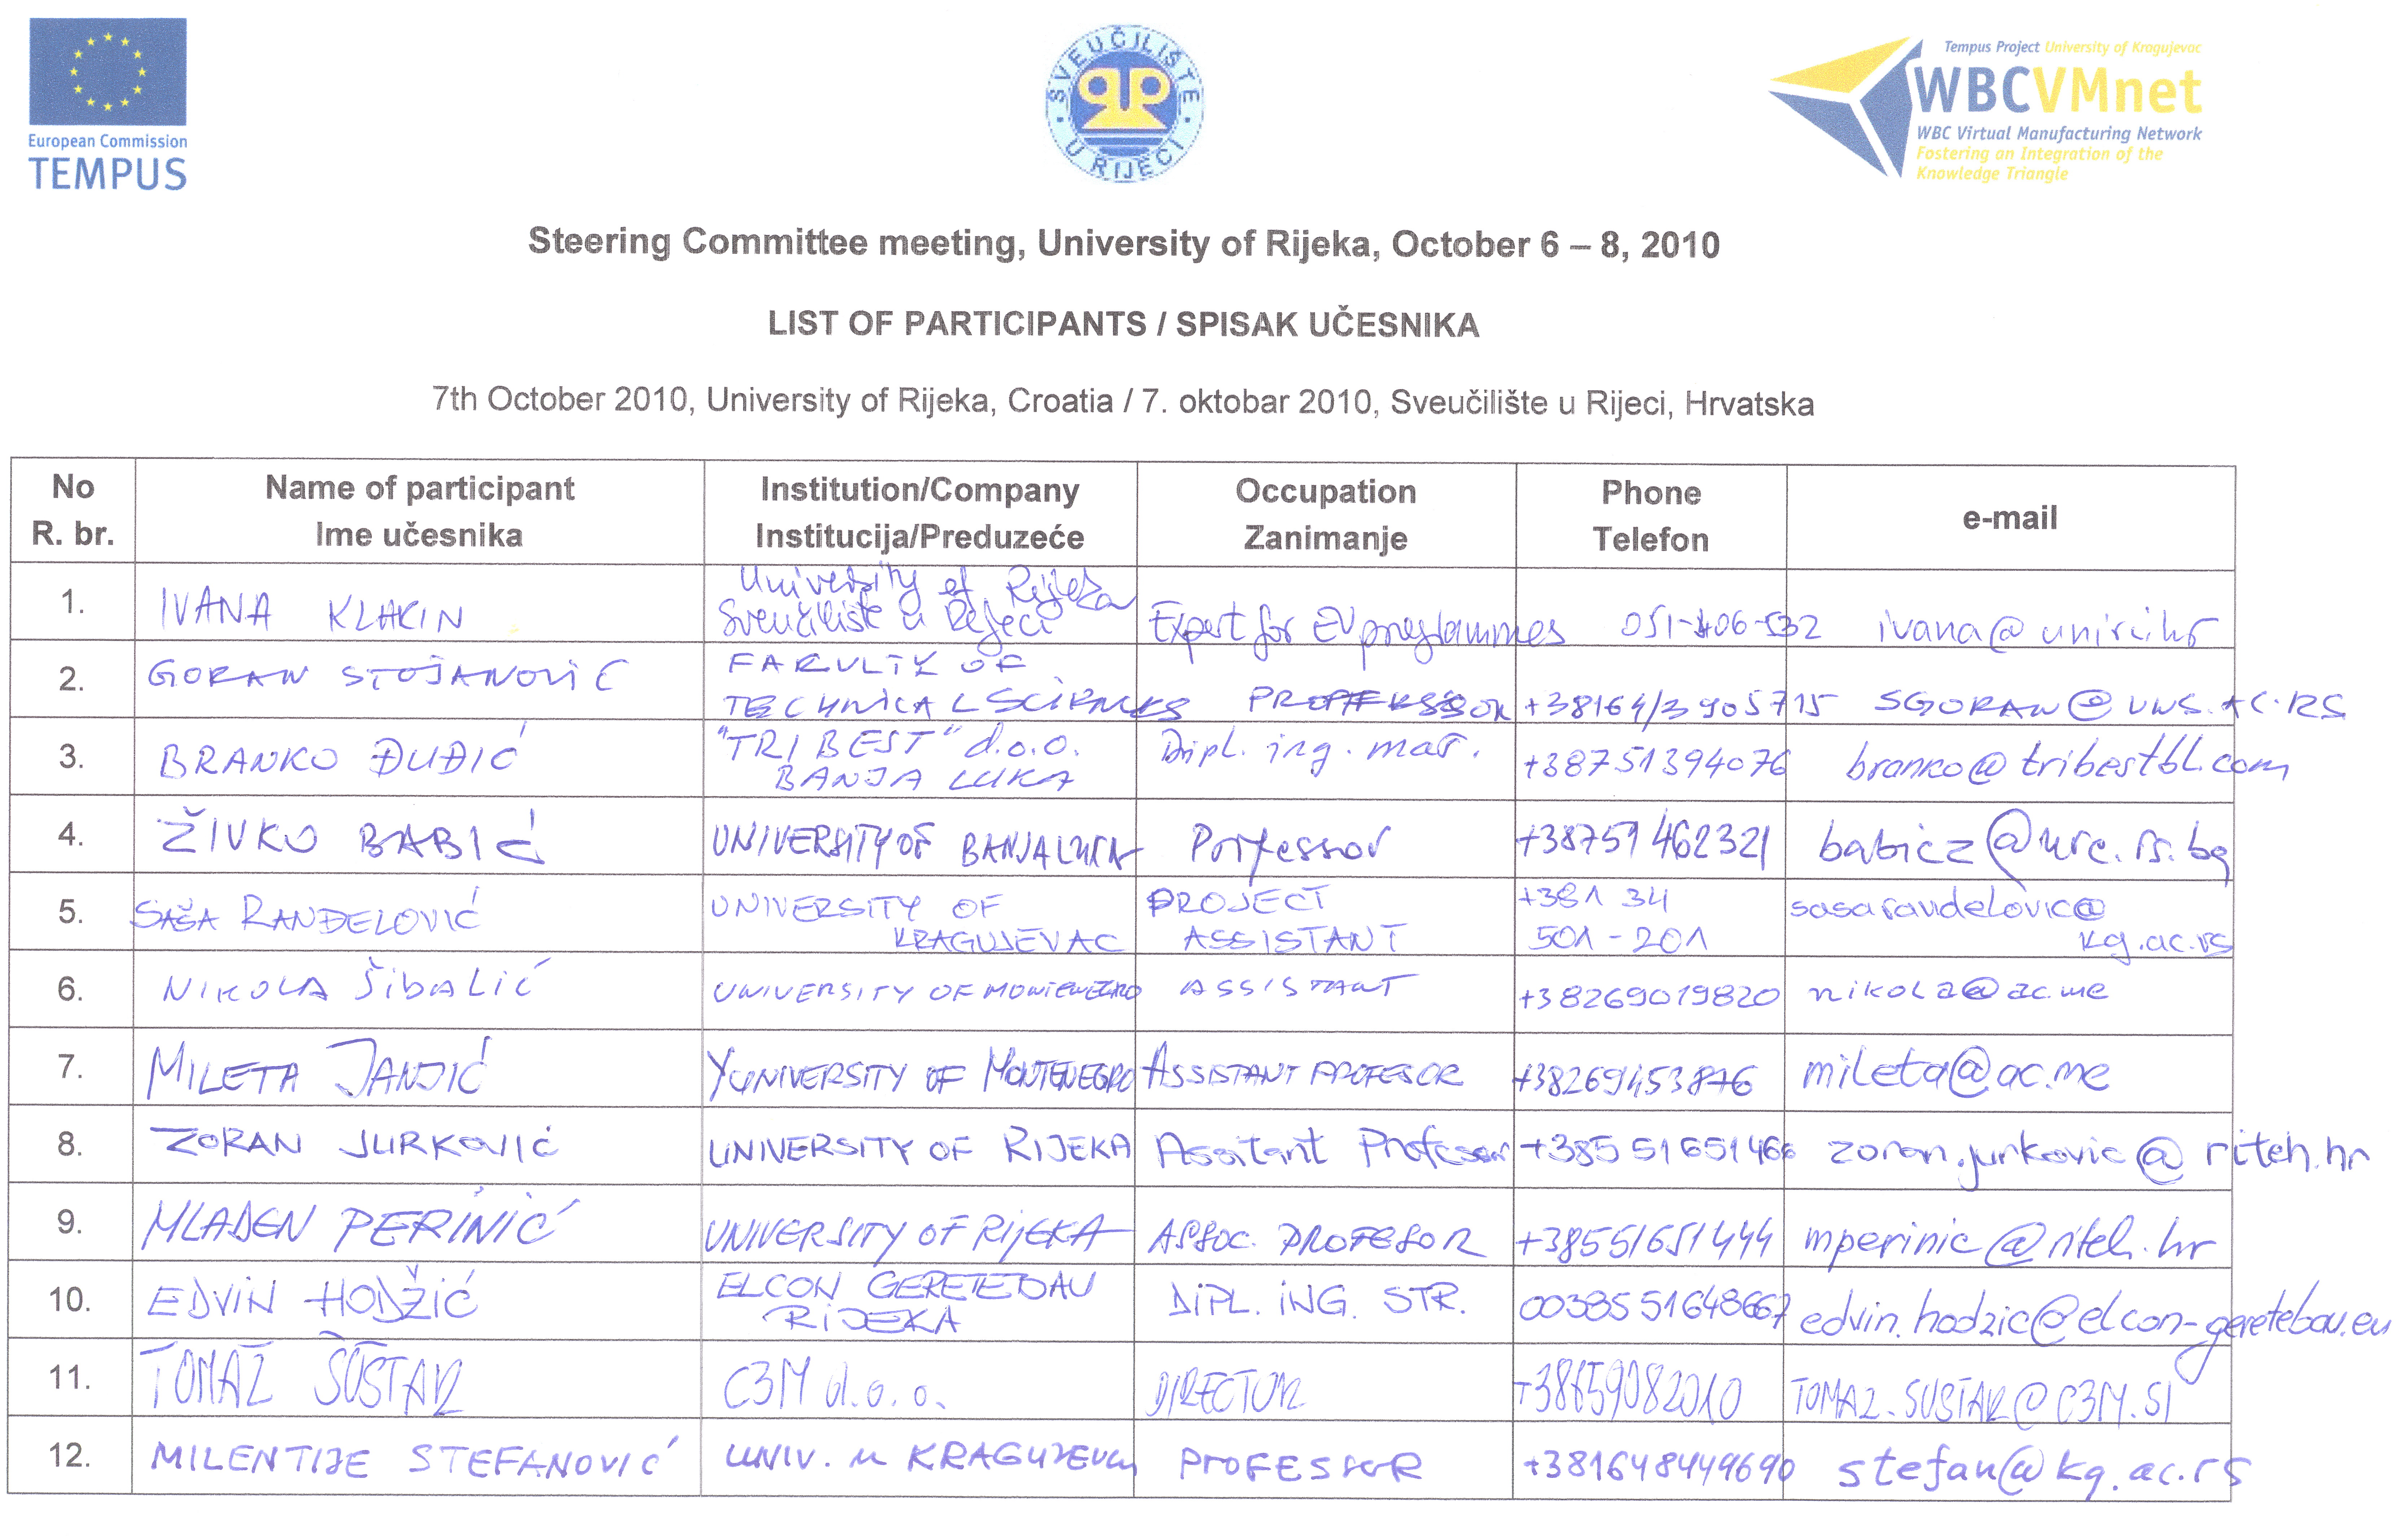 European Commission
TEMPUS
SVEUČILIŠTE U RIJECI
Tempus Project University of Kragujevac
WBCVMnet
WBC Virtual Manufacturing Network
Fostering an Integration of the
Knowledge Triangle
Steering Committee meeting, University of Rijeka, October 6 – 8, 2010
LIST OF PARTICIPANTS / SPISAK UČESNIKA
7th October 2010, University of Rijeka, Croatia / 7. oktobar 2010, Sveučilište u Rijeci, Hrvatska
No R. br. Name of participant Ime učesnika Institution/Company Institucija/Preduzeće Occupation Zanimanje Phone Telefon e-mail
1. IVANA KLAKIN University of Rijeka Sveučilište u Rijeci Expert for EU programmes ivana@uniri.hr
2. GORAN STOJANOVIĆ FACULTY OF TECHNICAL SCIENCES PROFESSOR +38164/3905715 SGORAN@UNS.AC.RS
3. BRANKO ĐUĐIĆ "TRI BEST" d.o.o. BANJA LUKA Dipl. ing. maš. +38751394076 branko@tribestbl.com
4. ŽIVKO BABIĆ UNIVERSITY OF BANJALUKA Professor +38751462321
5. SAŠA RANĐELOVIĆ UNIVERSITY OF KRAGUJEVAC PROJECT ASSISTANT +381 34 501-201 sasarandelovic@kg.ac.rs
6. NIKOLA ŠIBALIĆ UNIVERSITY OF MONTENEGRO ASSISTANT +38269019820 nikola@ac.me
7. MILETA JANJIĆ YUNIVERSITY OF MONTENEGRO ASSISTANT PROFESOR +38269453876 mileta@ac.me
8. ZORAN JURKOVIĆ UNIVERSITY OF RIJEKA Assitant Professor +385 51 651 466 zoran.jurkovic@riteh.hr
9. MLADEN PERINIĆ UNIVERSITY OF RIJEKA ASSOC. PROFESOR +38551651444 mperinic@riteh.hr
10. EDVIN HODŽIĆ ELCON GERETEBAU RIJEKA DIPL. ING. STR. 0038551648667 edvin.hodzic@elcon-geretebau.eu
11. TOMAŽ ŠUŠTAR C3M d.o.o. DIRECTOR +38659082010 TOMAZ.SUSTAR@C3M.SI
12. MILENTIJE STEFANOVIĆ UNIV. u KRAGUJEVCU PROFESSOR +381648449690 stefan@kg.ac.rs